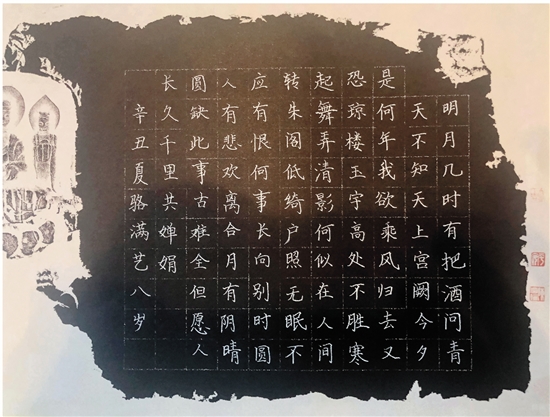 明月几时有把酒问青
天不知天上宫阙今夕
是何年我欲乘风归去又
恐琼楼玉宇高处不胜寒
起舞弄清影何似在人间
转朱阁低绮户照无眠不
应有恨何事长向别时圆
人有悲欢离合月有阴晴
圆缺此事古难全但愿人
长久千里共婵娟
辛丑夏骆满艺八岁